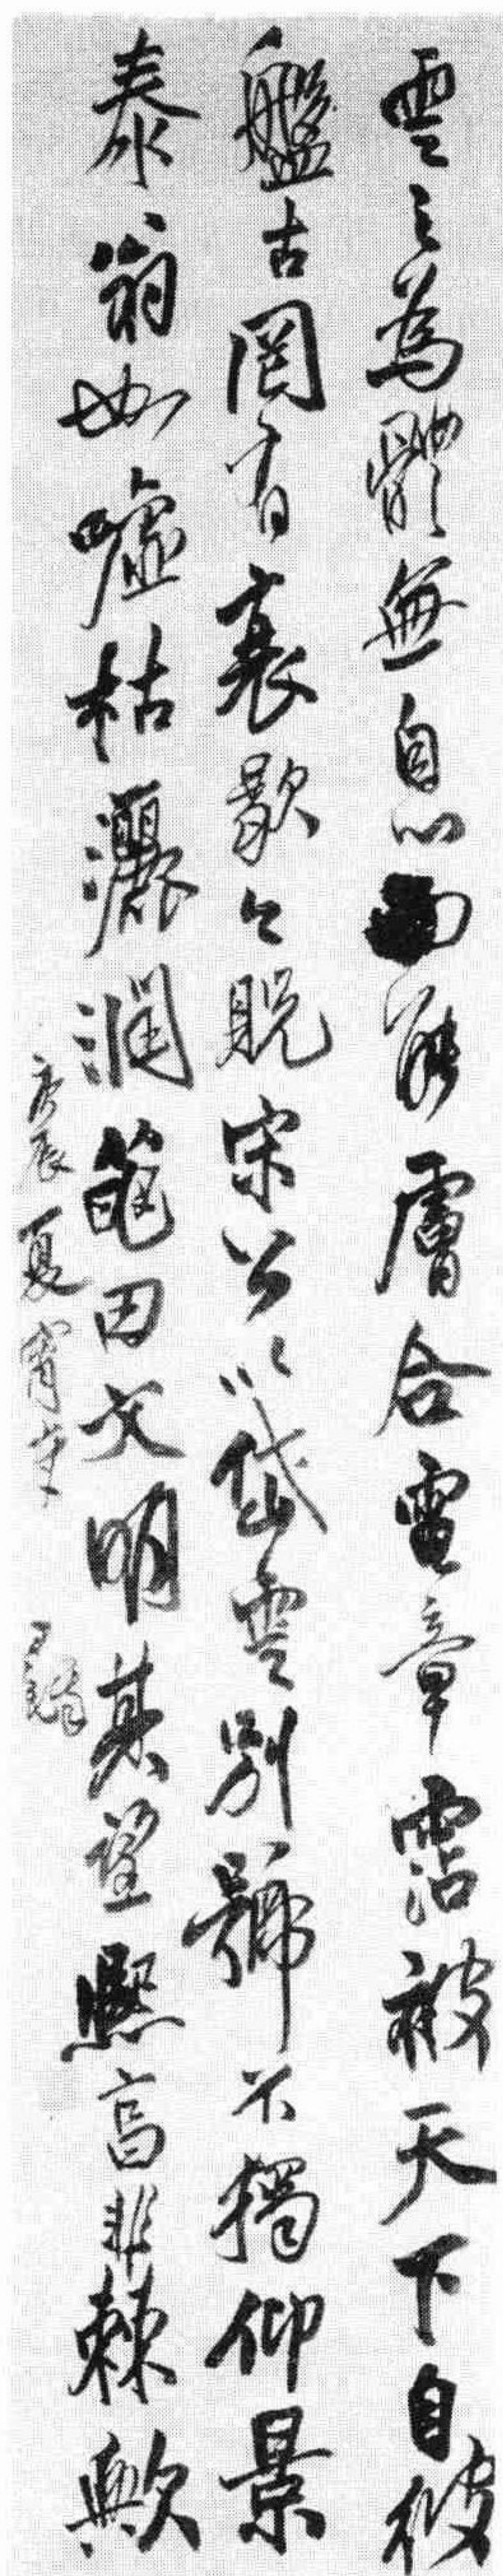 雲之為體無自心而能膚合章霑被天下自彼
盤古罔有衰歇今既宋公以岱雲別號不獨仰景
泰翁如噓枯灑潤田文明其望熙高非棘歟
庚辰夏宵 王鐸